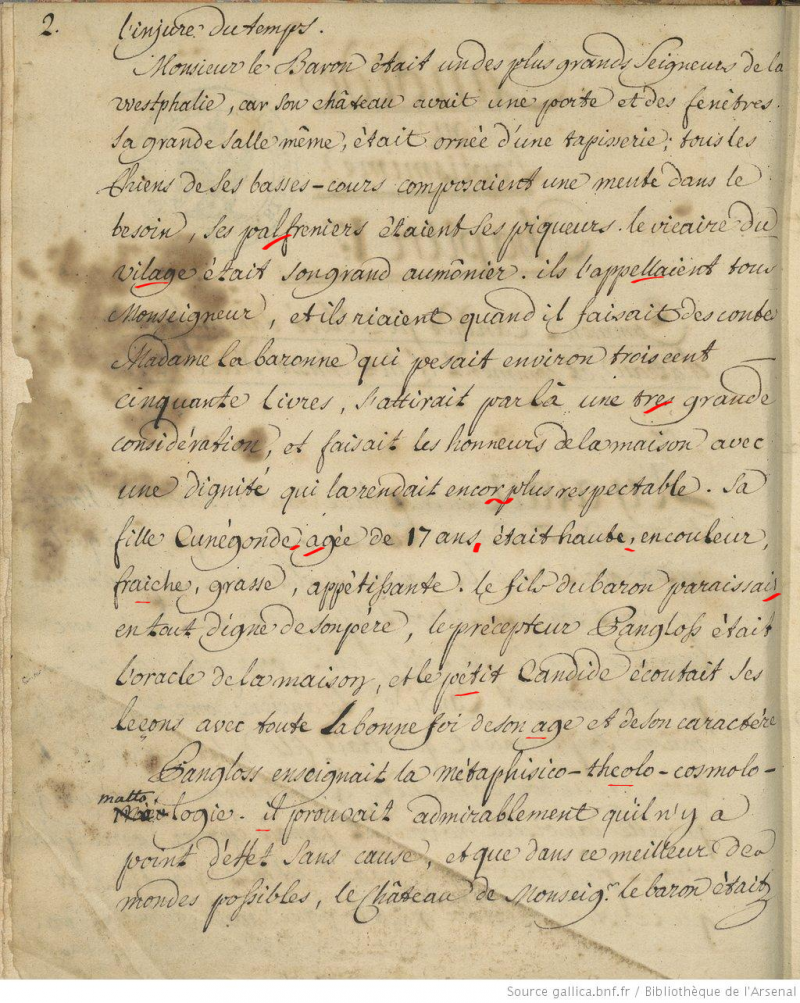 2.
l'injure du temps.
Monsieur le Baron était un des plus grands Seigneurs de la
Westphalie, car son château avait une porte et des fenêtres.
sa grande salle même, était ornée d'une tapisserie; tous les
chiens de ses basses-cours composaient une meute dans le
besoin, ses palfreniers étaient ses piqueurs. le vicaire du
vilage était son grand aumônier. ils l'appellaient tous
Monseigneur, et ils riaient quand il faisait des conte
Madame la baronne qui pesait environ trois cent
cinquante livres, s'attirait par là une tres grande
considération, et faisait les honneurs de la maison avec
une dignité qui la rendait encor plus respectable. Sa
fille Cunégonde, agée de 17 ans, était haute, en couleur,
fraiche, grasse, appétissante. le fils du baron paraissait
en tout digne de son père, le précepteur Pangloss était
l'oracle de la maison, et le pétit Candide écoutait ses
leçons avec toute la bonne foi de son age et de son caractére
Pangloss enseignait la métaphisico-theolo-cosmolo-
matto
logie. il prouvait admirablement qu'il n'y a
point d'effet sans cause, et que dans ce meilleur de
mondes possibles, le Château de Monseigr. le baron était
Source gallica.bnf.fr / Bibliothèque de l'Arsenal